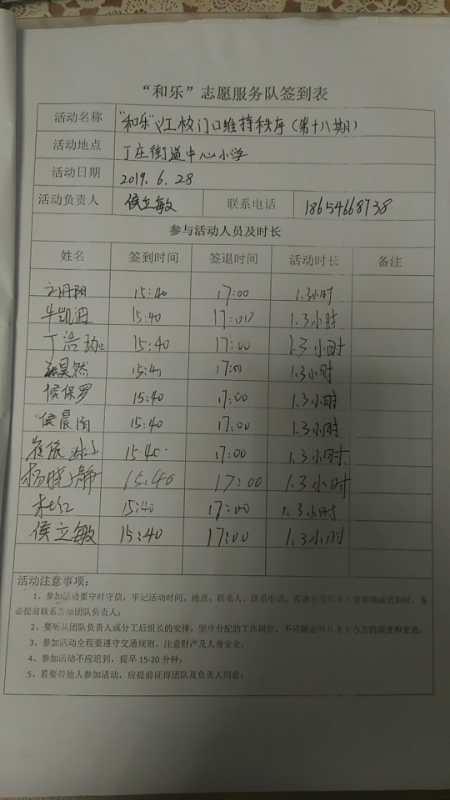 “和乐”志愿服务队签到表
活动名称 “和乐”义工校门口维持秩序（第十八期）
活动地点 丁庄街道中心小学
活动日期 2019.6.28
活动负责人 侯立敏 联系电话 18654668738
参与活动人员及时长
姓名 签到时间 签退时间 活动时长 备注
15:40 17:00 1.3小时
牛凯 15:40 17:00 1.3小时
丁浩 15:40 17:00 1.3小时
昊然 15:40 17:00 1.3小时
侯保罗 15:40 17:00 1.3小时
侯晨 15:40 17:00 1.3小时
15:40 17:00 1.3小时
杨晓静 15:40 17:00 1.3小时
杜红 15:40 17:00 1.3小时
侯立敏 15:40 17:00 1.3小时
活动注意事项：
1、参加活动要守时守信，牢记活动时间、地点、联系人、联系电话，
必提前联系活动团队负责人；
2、要听从团队负责人或分工后组长的安排，坚守分配的工作岗位，
3、参加活动全程要遵守交通规则，注意财产及人身安全；
4、参加活动不应迟到，提早15-20分钟；
5、若要带他人参加活动，应提前征得团队及负责人同意；